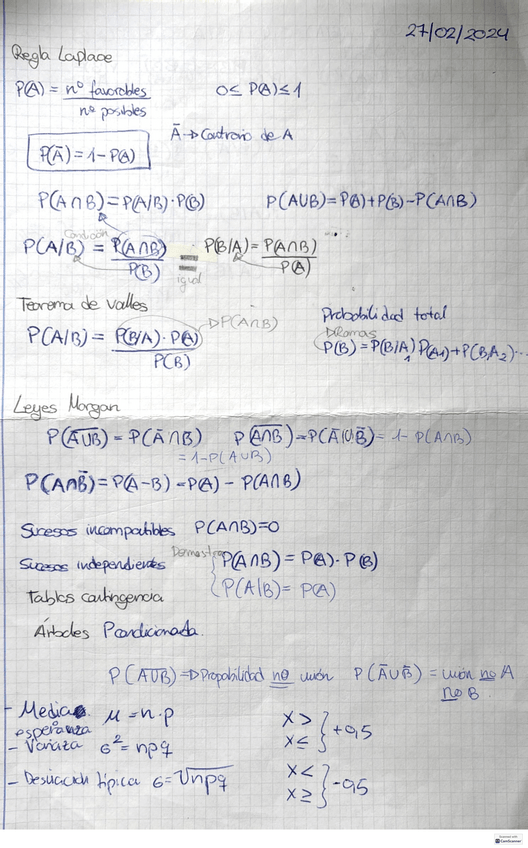 27/02/2024
Regla Laplace
P(A) = nº favorables / nº posibles   0 ≤ P(A) ≤ 1
Ā → Contrario de A
P(Ā) = 1 - P(A)
P(A∩B) = P(A/B) · P(B)   P(A∪B) = P(A) + P(B) - P(A∩B)
Condición
P(A/B) = P(A∩B) / P(B) = P(B/A) = P(A∩B) / P(A)
igual
Teorema de valles
P(A/B) = P(B/A) · P(A) / P(B) → P(A∩B)
Probabilidad total
→ Ramas
P(B) = P(B/A)₁ P(A1) + P(B,A₂)...
Leyes Morgan
P(A̅∪̅B̅) = P(Ā∩B̄)   P(A̅∩̅B̅) = P(Ā∪B̄) = 1 - P(A∩B)
= 1 - P(A∪B)
P(A∩B̄) = P(A-B) = P(A) - P(A∩B)
Sucesos incompatibles P(A∩B) = 0
Sucesos independientes Demostrar { P(A∩B) = P(A) · P(B)
P(A|B) = P(A)
Tablas contingencia
Árboles Pcondicionada.
P(A̅∪̅B̅) ⇒ Propabilidad no unión   P(Ā∪B̄) = unión no A
no B.
- Media μ = n·p
esperanza
- Varianza σ² = npq
- Desviación típica σ = √npq
X >
X ≤ } +0,5
X <
X ≥ } -0,5
Scanned with
CamScanner